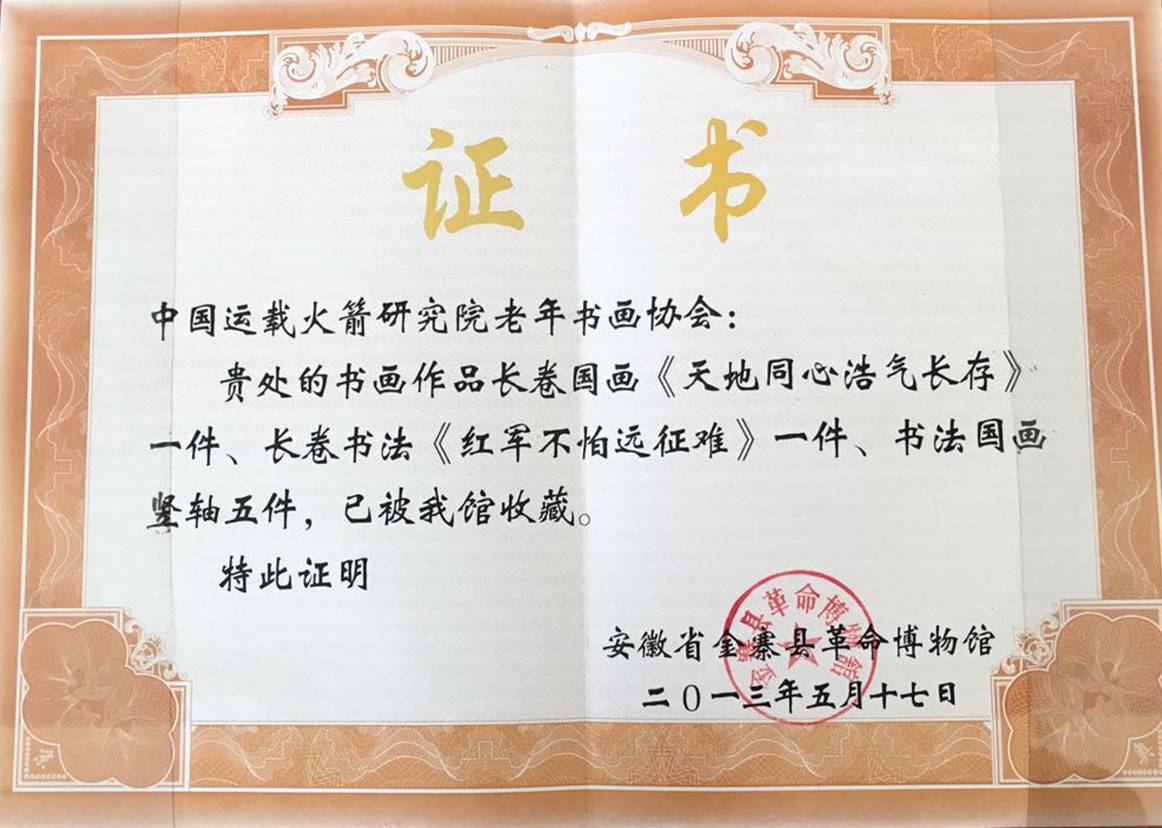 证书
中国运载火箭研究院老年书画协会：
贵处的书画作品长卷国画《天地同心浩气长存》
一件、长卷书法《红军不怕远征难》一件、书法国画
竖轴五件，已被我馆收藏。
特此证明
安徽省金寨县革命博物馆
二〇一三年五月十七日
金寨县革命博物馆